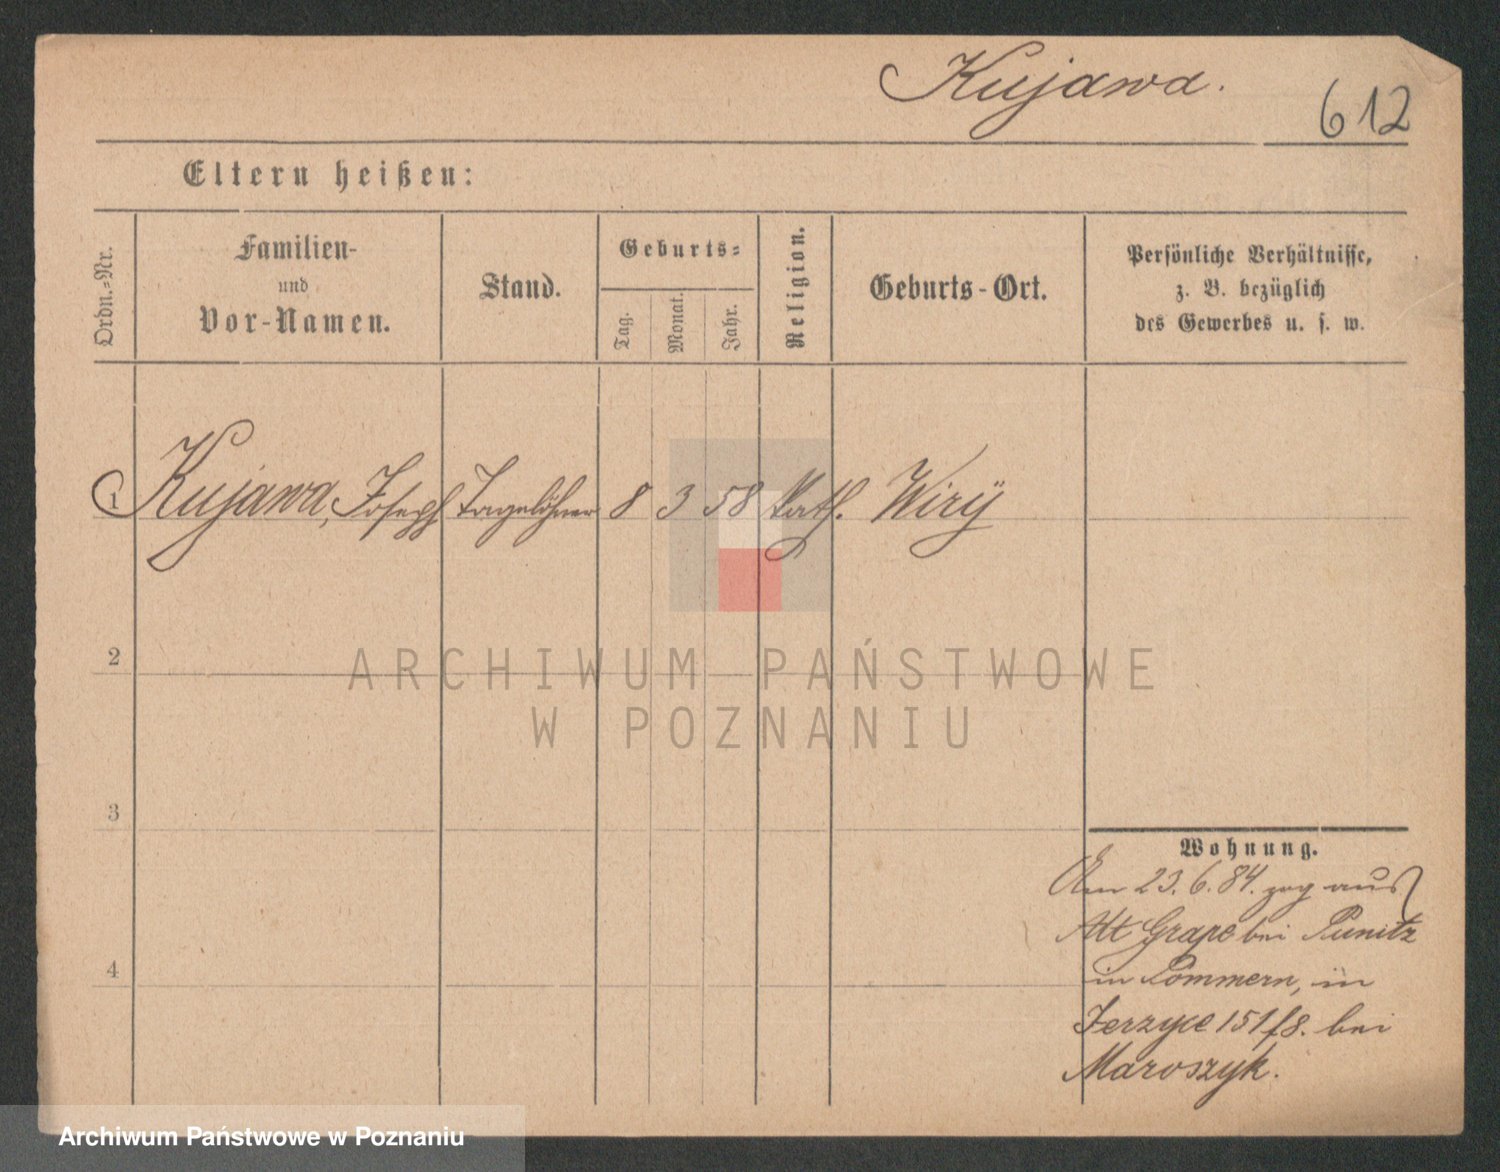 Kujawa.
612
Eltern heißen:
Ordn.-Nr.
Familien-
und
Vor-Namen.
Stand.
Geburts-
Tag.
Monat.
Jahr.
Religion.
Geburts-Ort.
Persönliche Verhältnisse,
z. B. bezüglich
des Gewerbes u. s. w.
1 Kujawa, Joseph Tagelöhner 8 3 58 kath. Wirÿ
2
ARCHIWUM PAŃSTWOWE
W POZNANIU
3
Wohnung.
Am 23. 6. 84. zog aus
Alt Grape bei
4
in Pommern, in
Jerzyce 151/8. bei
Maroszyk.
Archiwum Państwowe w Poznaniu